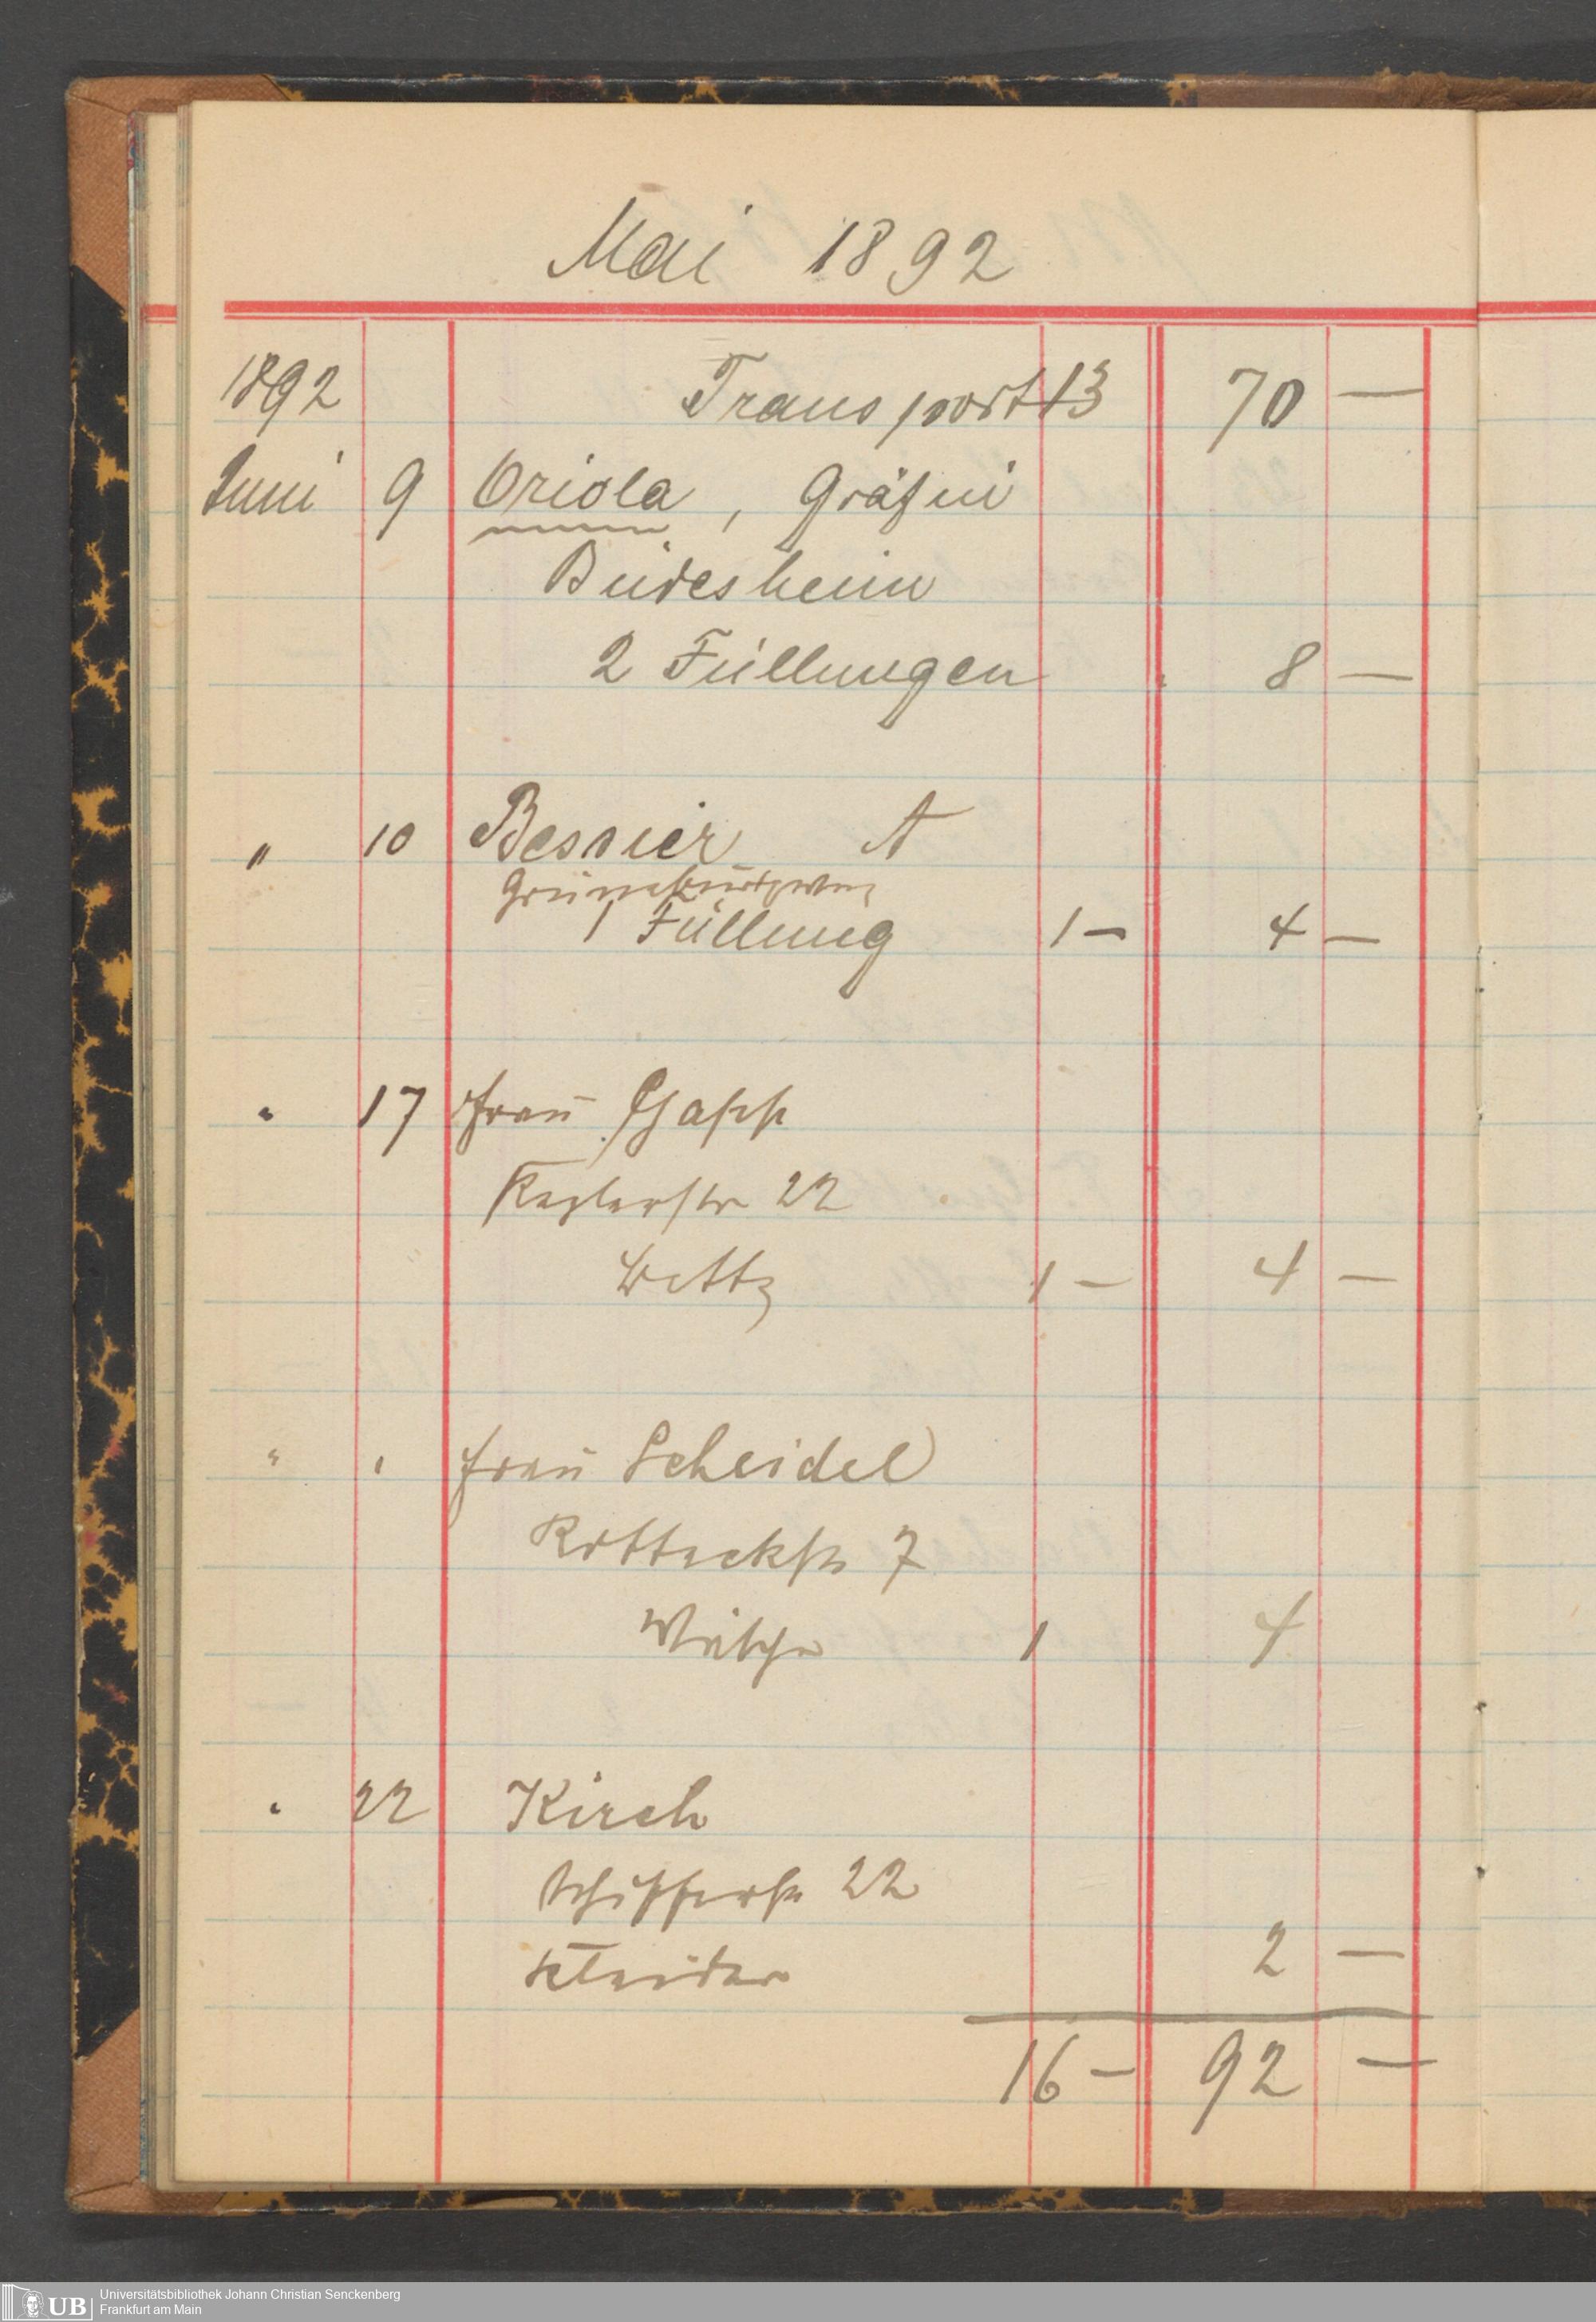 Mai 1892
1892 Transport 13 70 —
Juni 9 Oriola, Gräfin
Büdesheim
2 Füllungen 8 —
" 10 Bessier A
Grüneburgweg
1 Füllung 1 — 4 —
" 17 Frau
22
Bettz 1 — 4 —
" " Frau Scheidel
Rotteckstr 7
Wäsche 1 4
" 22 Kirch
Schifferstr 22
Kleider 2 —
16 — 92 —
UB Universitätsbibliothek Johann Christian Senckenberg
Frankfurt am Main